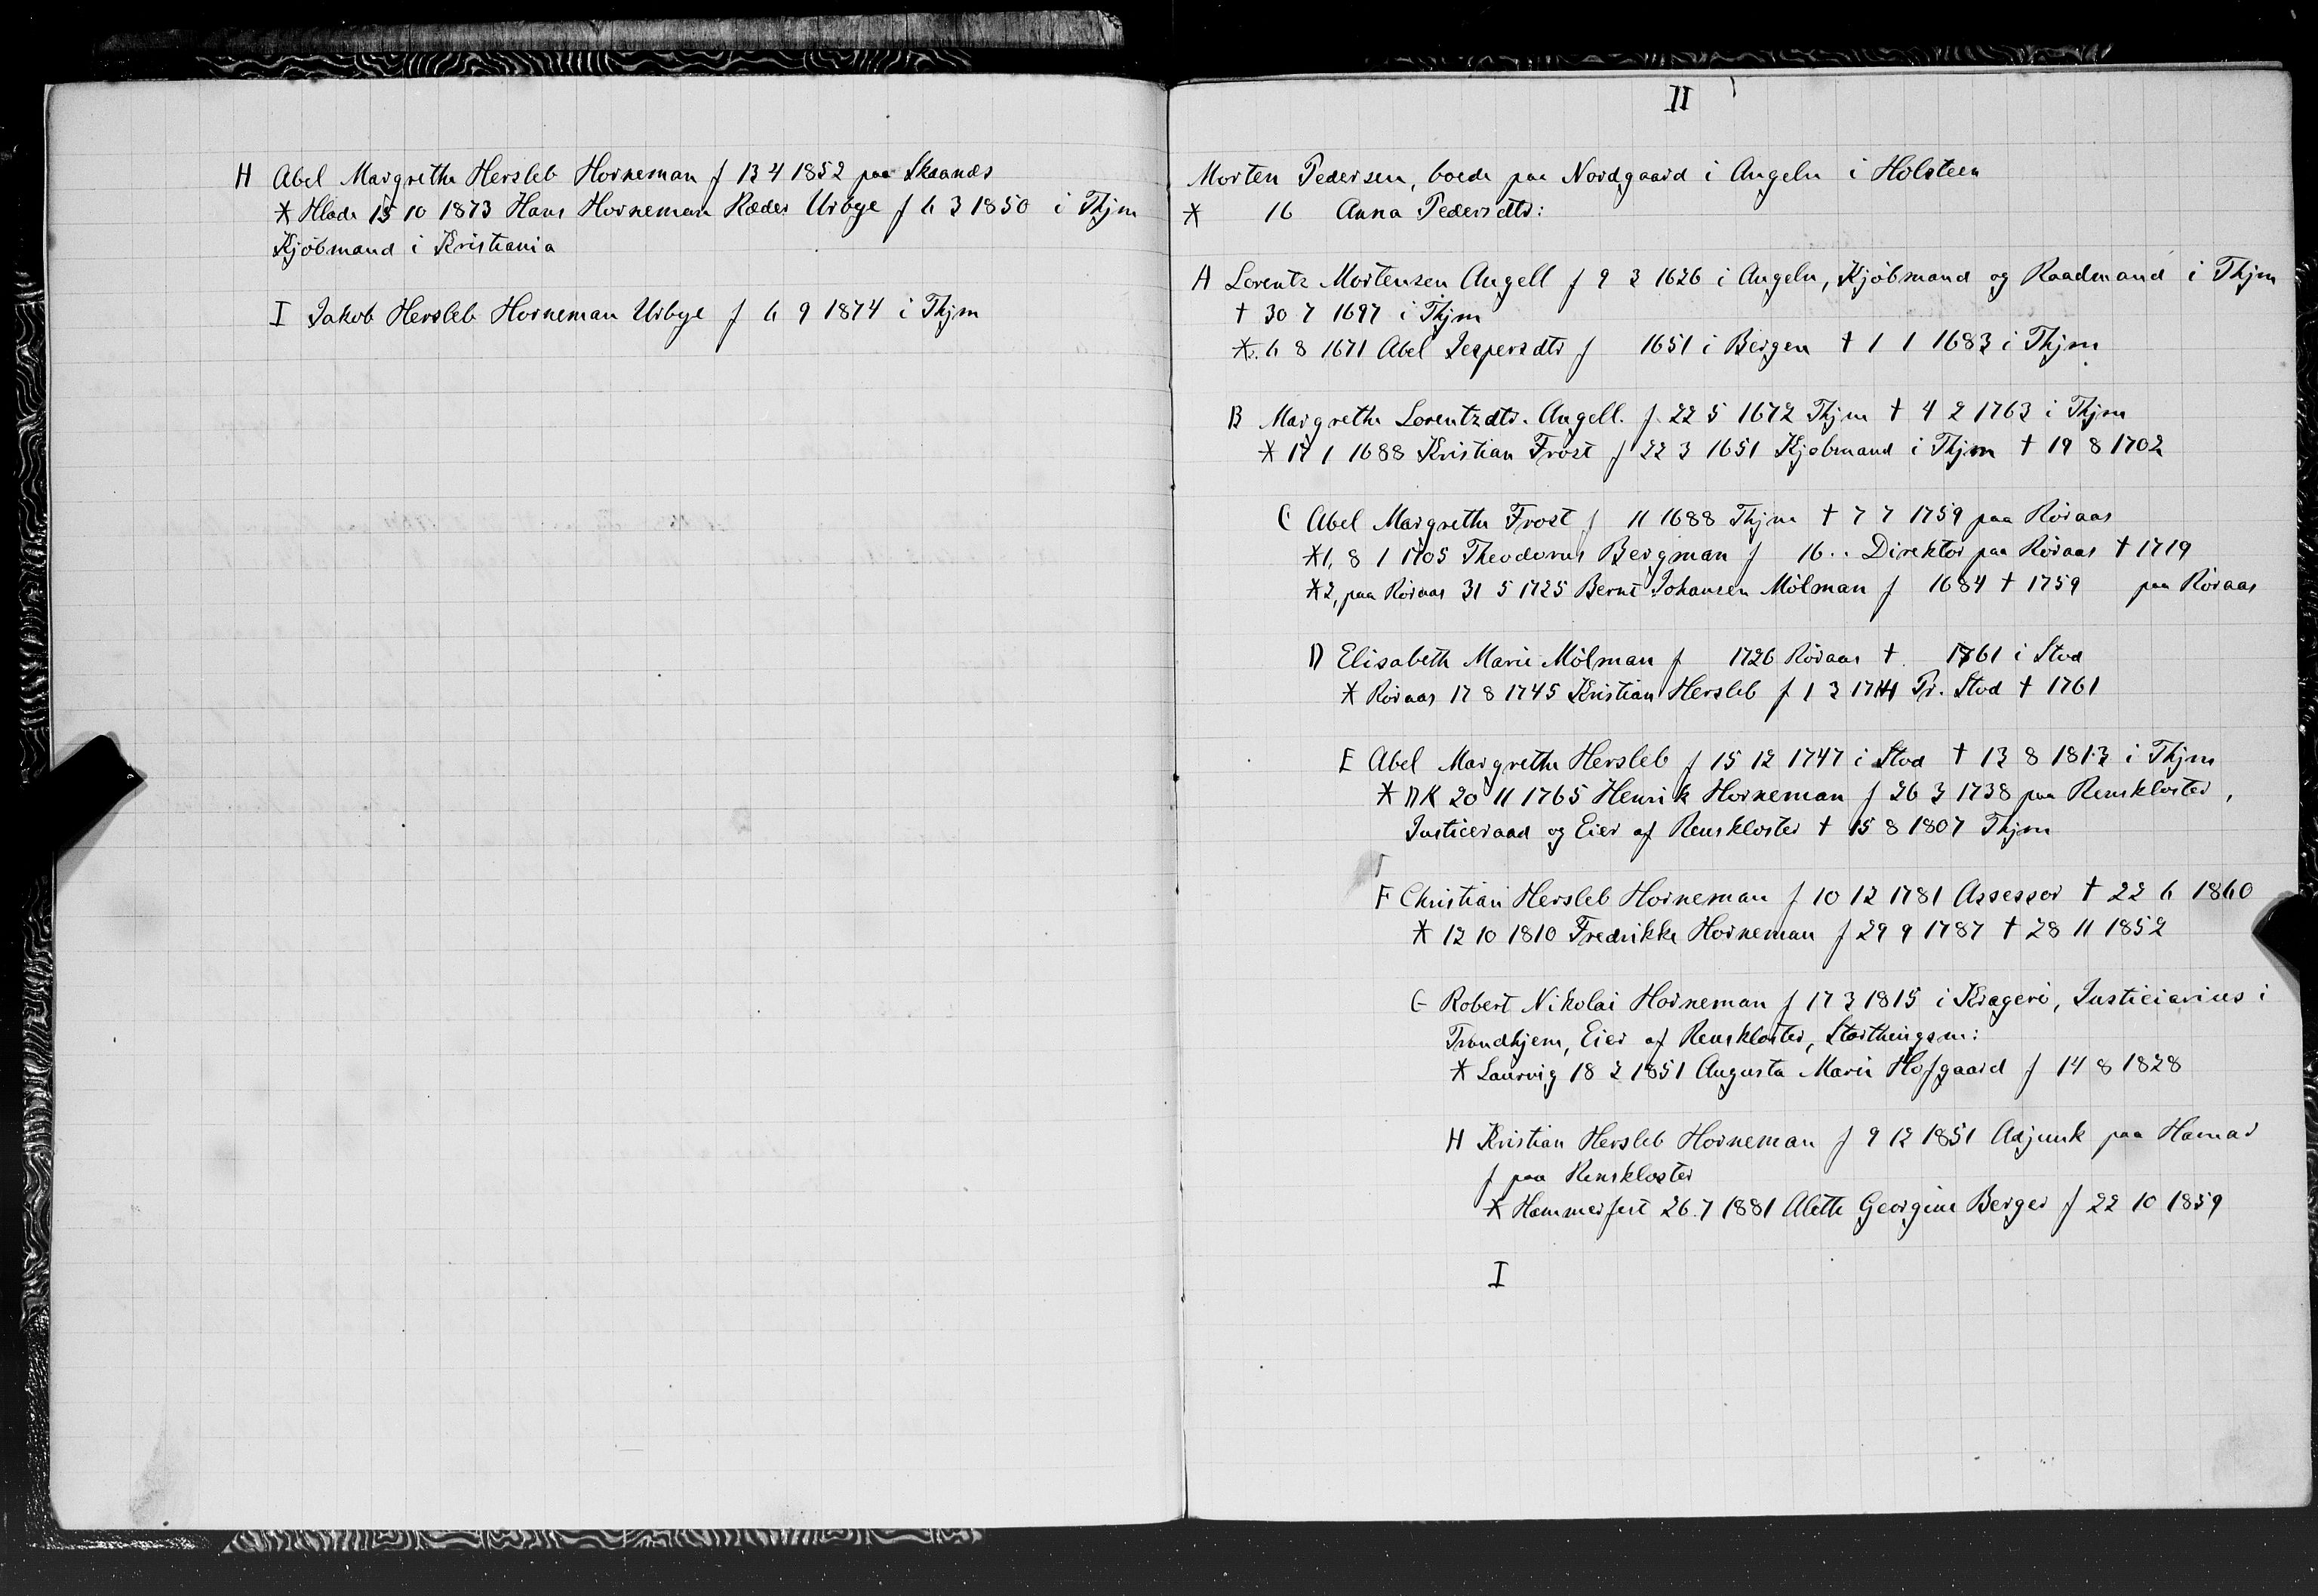 H Abel Margrethe Hersleb Horneman f 13 4 1852 paa Skaanes
* Hlade 15 10 1873 Hans Horneman Ræder Urbye f 6 3 1850 i Thjm
Kjöbmand i Kristiania
I Jakob Hersleb Horneman Urbye f 6 9 1874 i Thjm
II
Morten Pedersen, boede paa Nordgaard i Angeln i Holsteen
* 16 Anna Pedersdtr:
A Lorentz Mortensen Angell f 9 3 1626 i Angeln, Kjöbmand og Raadmand i Thjm
† 30 7 1697 i Thjm
*. 6 8 1671 Abel Jespersdtr f 1651 i Bergen † 1 1 1683 i Thjm
B Margrethe Lorentzdtr. Angell. f. 22 5 1672 Thjm † 4 2 1763 i Thjm
* 17 1 1688 Kristian Frost f 22 3 1651 Kjobmand i Thjm † 19 8 1702
C Abel Margrethe Frost f 11 1688 Thjm † 7 7 1759 paa Röraas
*1, 8 1 1705 Theodorus Bergman f 16.. Direktor paa Röraas † 1719
*2, paa Röraas 31 5 1725 Bernt Johansen Mölman f 1684 † 1759 paa Röraas
D Elisabeth Marie Mölman f 1726 Röraas † 1761 i Stod
* Röraas 17 8 1745 Kristian Hersleb f 1 3 1714 Pr. Stod † 1761
E Abel Margrethe Hersleb f 15 12 1747 i Stod † 13 8 1813 i Thjm
* DK 20 11 1765 Henrik Horneman f 26 3 1738 paa Renskloster,
Justiceraad og Eier af Renskloster † 15 8 1807 Thjm
F Christian Hersleb Horneman f 10 12 1781 Assessor † 22 6 1860
* 12 10 1810 Fredrikke Horneman f 29 9 1787 † 28 11 1852
G Robert Nikolai Horneman f 17 3 1815 i Kragerö, Justiciarius i
Trondhjem, Eier af Renskloster, Storthingsm:
* Laurvig 18 2 1851 Augusta Marie Hofgaard f 14 8 1828
H Kristian Hersleb Horneman f 9 12 1851 Adjunk paa Hamar
f paa Renskloster
* Hammerfest 26.7 1881 Alette Georgine Berger f 22 10 1859
I